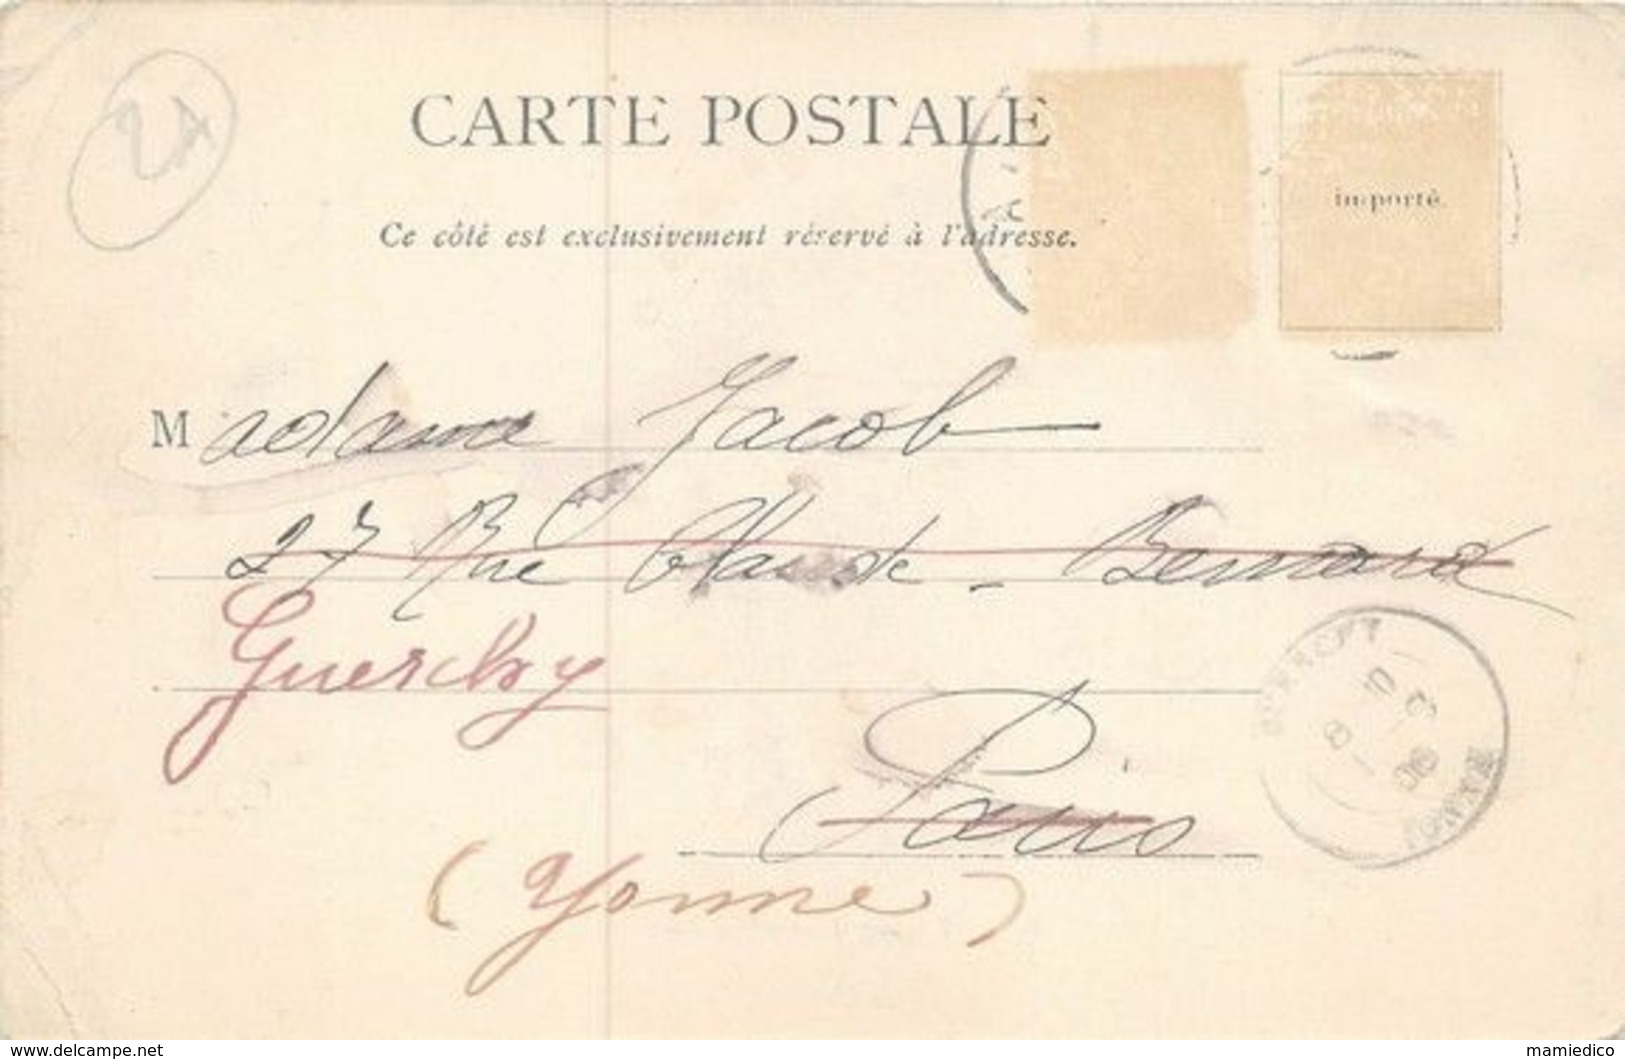 2A
CARTE POSTALE
Ce côté est exclusivement réservé à l'adresse.
importé
Madame Jacob
27 Rue Claude-Bernard
Guerchy
Paris
(Yonne)
YONNE
www.delcampe.net
mamiedico